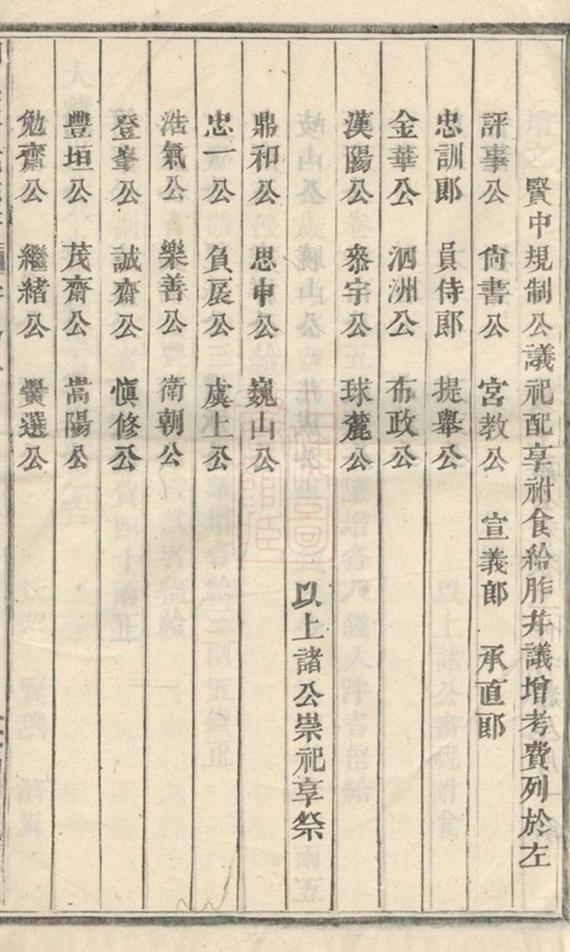 賢中規制公議祀配享祔食給胙并議增考費列於左
評事公　尙書公　宮教公　宣義郎　承直郎
忠訓郎　員侍郎　提舉公
金華公　泗洲公　布政公
漢陽公　叅宇公　球麓公
以上諸公崇祀享祭
鼎和公　思中公　巍山公
忠一公　負扆公　虞上公
浩氣公　樂善公　衛朝公
登峯公　誠齋公　愼修公
豐垣公　茂齋公　嵩陽公
勉齋公　繼緒公　釁選公